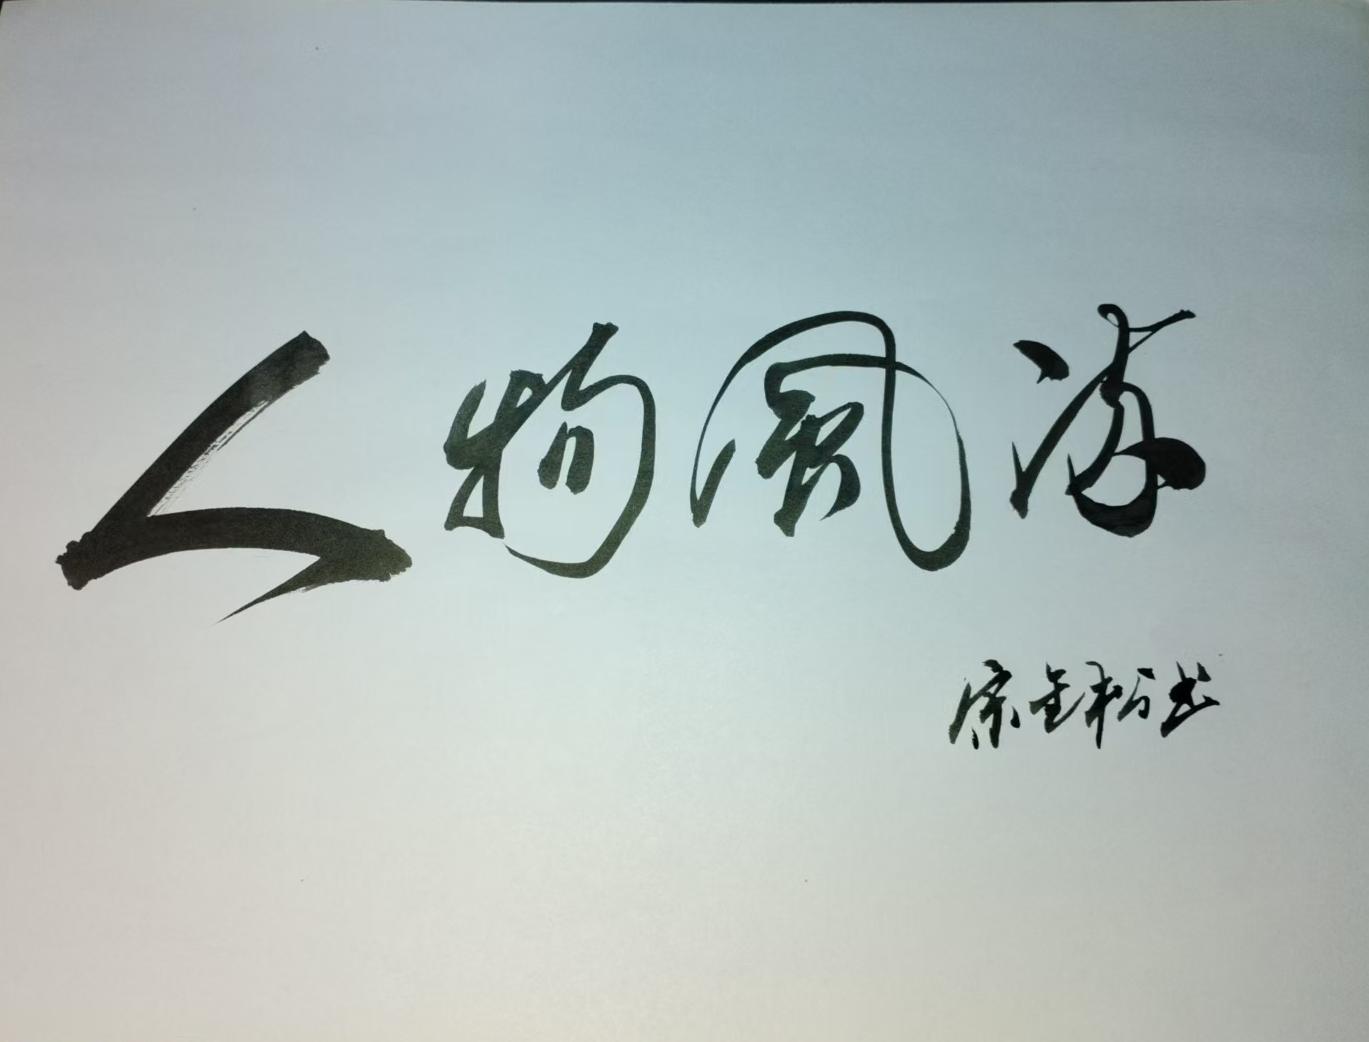 人物風流
宗金松书